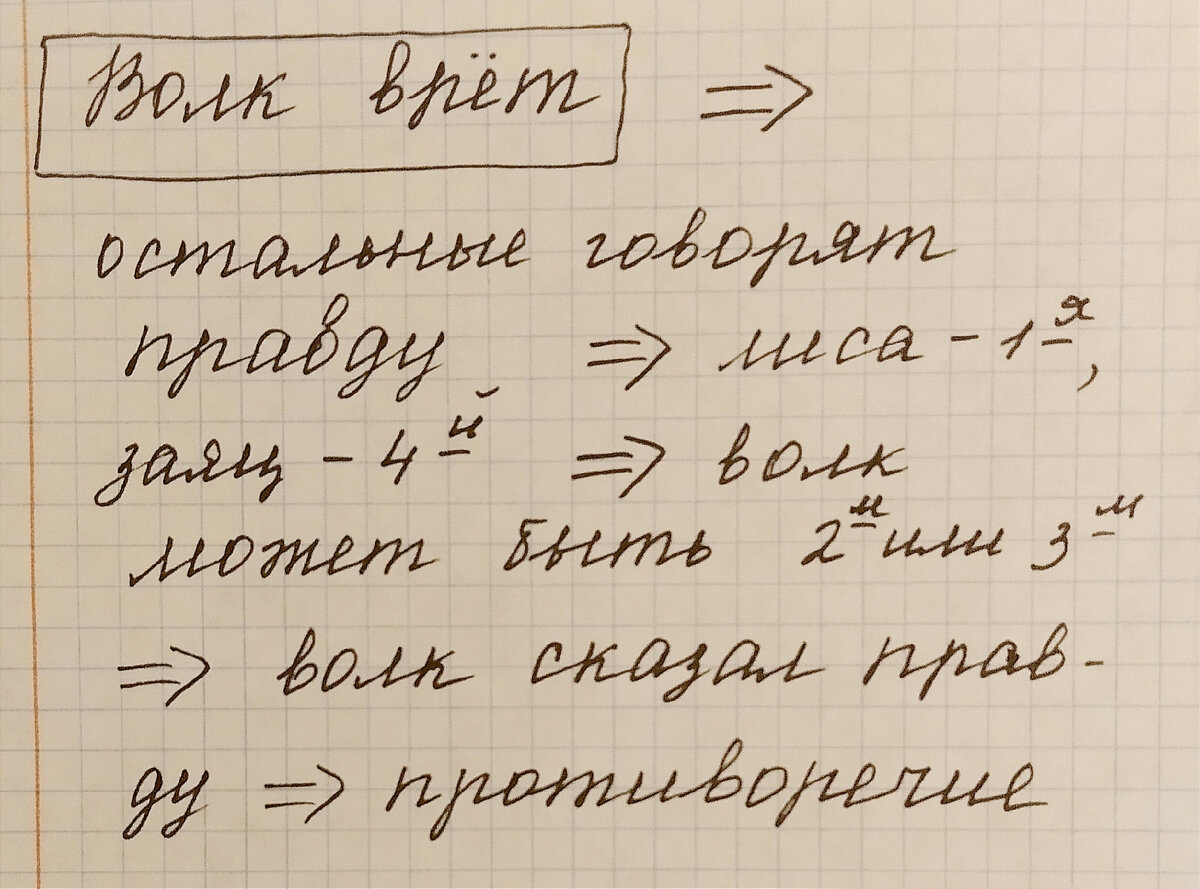 Волк врёт ⇒
остальные говорят
правду ⇒ лиса - 1я,
заяц - 4й ⇒ волк
может быть 2м или 3м
⇒ волк сказал прав-
ду ⇒ противоречие